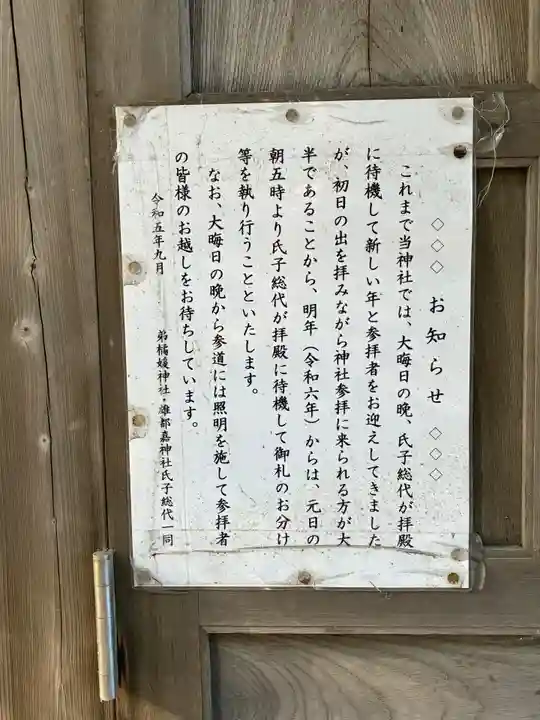 ◇◇◇ お知らせ ◇◇◇
これまで当神社では、大晦日の晩、氏子総代が拝殿
に待機して新しい年と参拝者をお迎えしてきました
が、初日の出を拝みながら神社参拝に来られる方が大
半であることから、明年（令和六年）からは、元日の
朝五時より氏子総代が拝殿に待機して御札のお分け
等を執り行うことといたします。
なお、大晦日の晩から参道には照明を施して参拝者
の皆様のお越しをお待ちしています。
令和五年九月
弟橘媛神社・雄都嘉神社氏子総代一同